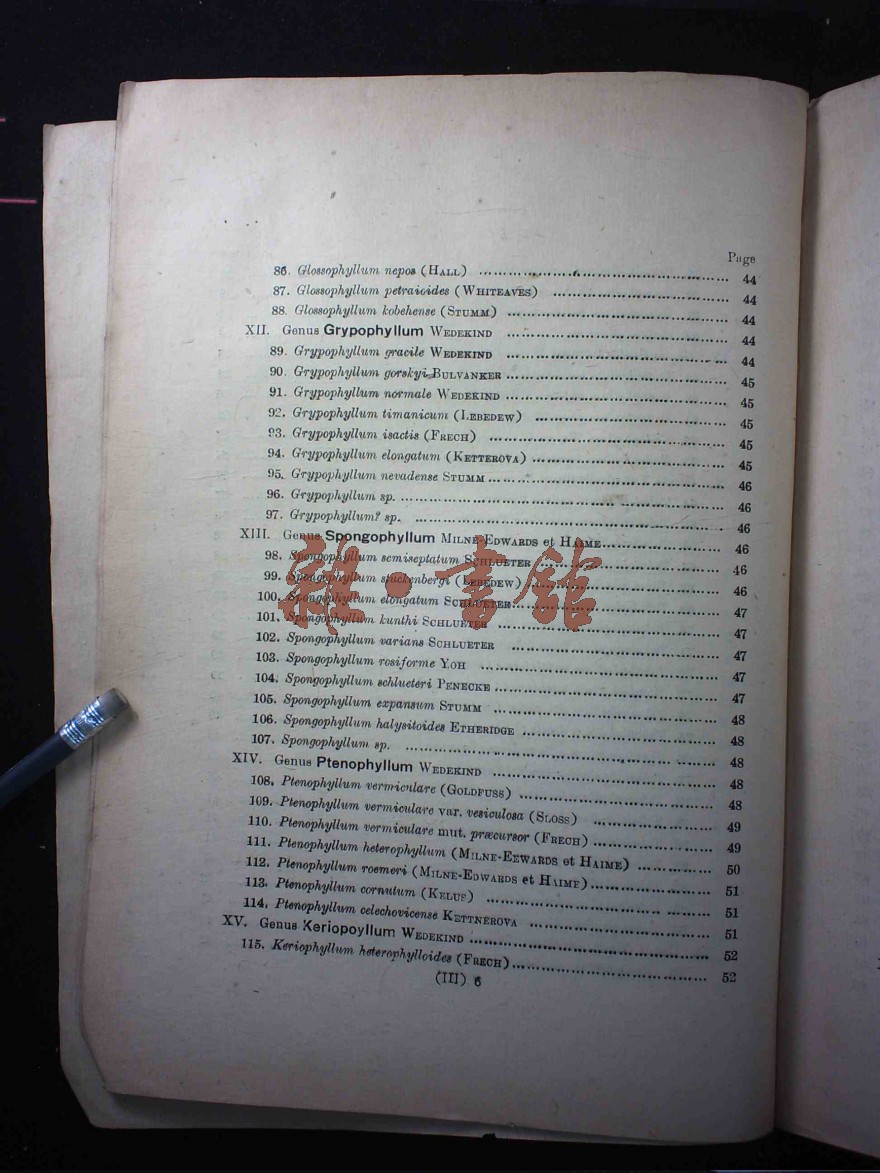 Page
86. Glossophyllum nepos (HALL) .......... 44
87. Glossophyllum petraioides (WHITEAVES) .......... 44
88. Glossophyllum kobehense (STUMM) .......... 44
XII. Genus Grypophyllum WEDEKIND .......... 44
89. Grypophyllum gracile WEDEKIND .......... 44
90. Grypophyllum gorskyi BULVANKER .......... 45
91. Grypophyllum normale WEDEKIND .......... 45
92. Grypophyllum timanicum (LEBEDEW) .......... 45
93. Grypophyllum isactis (FRECH) .......... 45
94. Grypophyllum elongatum (KETTEROVA) .......... 45
95. Grypophyllum nevadense STUMM .......... 46
96. Grypophyllum sp. .......... 46
97. Grypophyllum? sp. .......... 46
XIII. Genus Spongophyllum MILNE-EDWARDS et HAIME .......... 46
98. Spongophyllum semiseptatum SCHLUETER .......... 46
99. Spongophyllum stuckenbergi (LEBEDEW) .......... 46
100. Spongophyllum elongatum SCHLUETER .......... 47
101. Spongophyllum kunthi SCHLUETER .......... 47
102. Spongophyllum varians SCHLUETER .......... 47
103. Spongophyllum rosiforme YOH .......... 47
104. Spongophyllum schlueteri PENECKE .......... 47
105. Spongophyllum expansum STUMM .......... 48
106. Spongophyllum halysitoides ETHERIDGE .......... 48
107. Spongophyllum sp. .......... 48
XIV. Genus Ptenophyllum WEDEKIND .......... 48
108. Ptenophyllum vermiculare (GOLDFUSS) .......... 48
109. Ptenophyllum vermiculare var. vesiculosa (SLOSS) .......... 49
110. Ptenophyllum vermiculare mut. præcursor (FRECH) .......... 49
111. Ptenophyllum heterophyllum (MILNE-EEWARDS et HAIME) .......... 50
112. Ptenophyllum roemeri (MILNE-EDWARDS et HAIME) .......... 51
113. Ptenophyllum cornutum (KELUS) .......... 51
114. Ptenophyllum celechovicense KETTNEROVA .......... 51
XV. Genus Keriopoyllum WEDEKIND .......... 52
115. Keriophyllum heterophylloides (FRECH) .......... 52
(III) 6
雜·書館